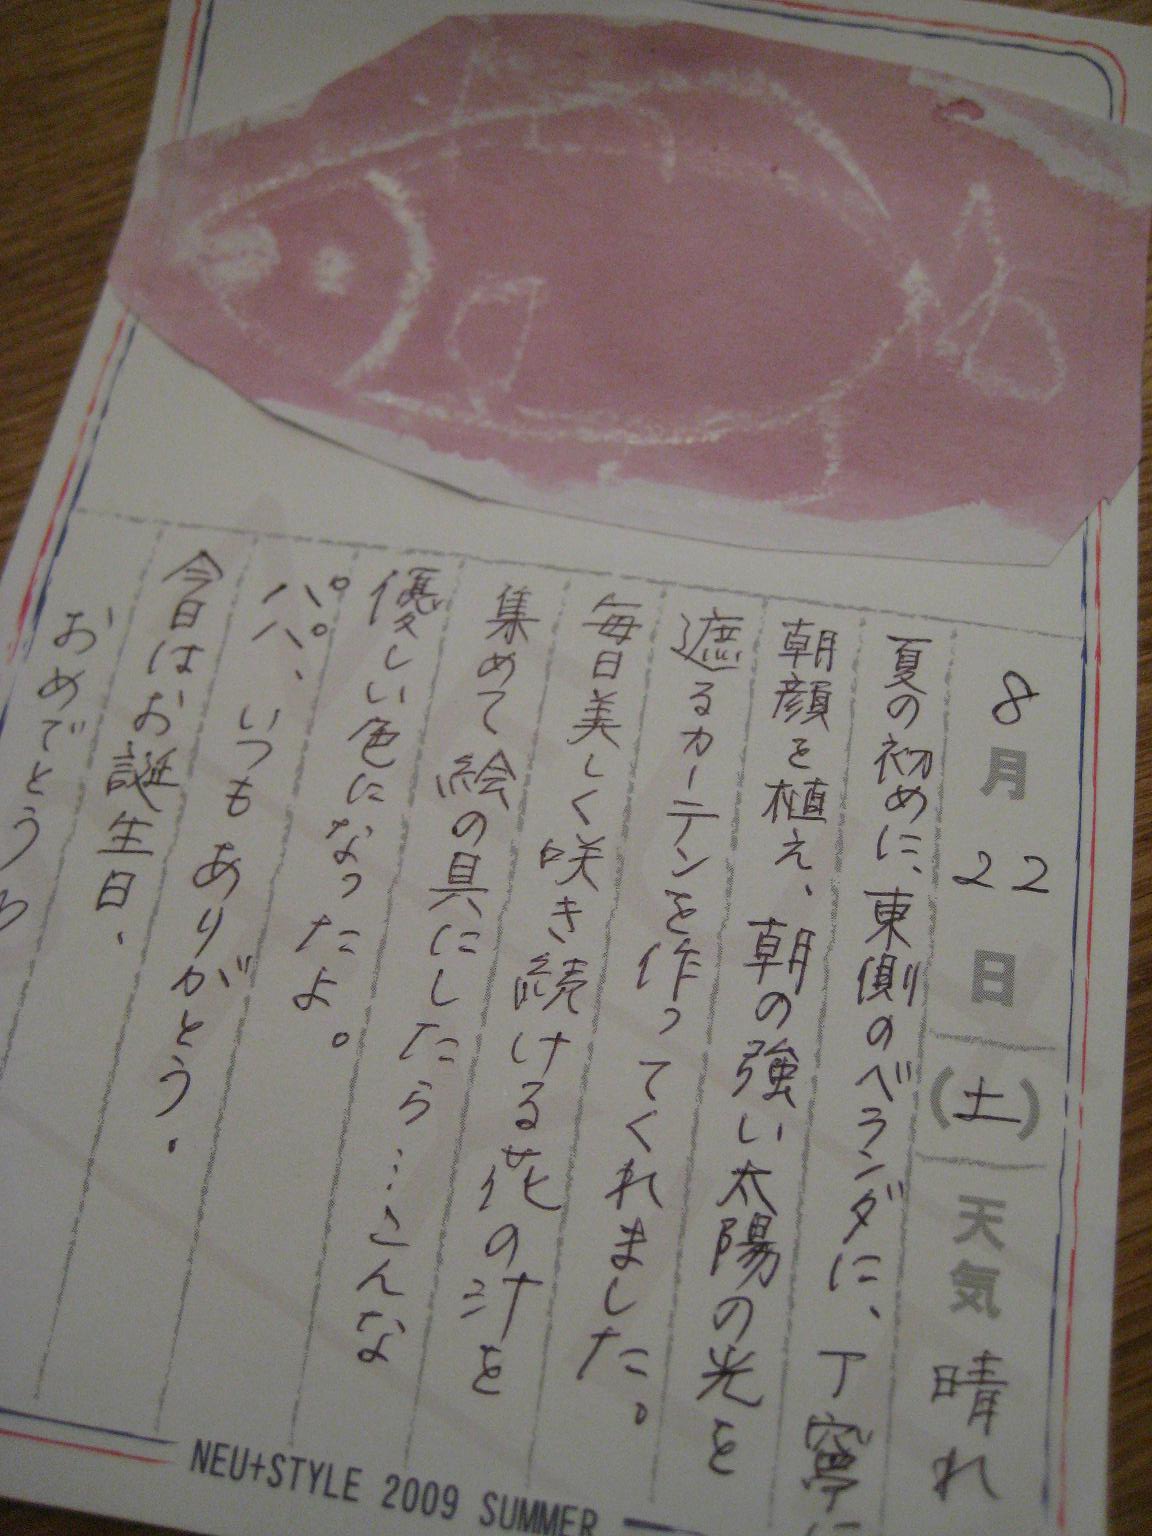 8月22日(土)天気 晴れ
夏の初めに、東側のベランダに、丁寧に
朝顔を植え、朝の強い太陽の光を
遮るカーテンを作ってくれました。
毎日美しく咲き続ける花の汁を
集めて絵の具にしたら…こんな
優しい色になったよ。
パパ、いつもありがとう.
今日はお誕生日、
おめでとう
NEU+STYLE 2009 SUMMER